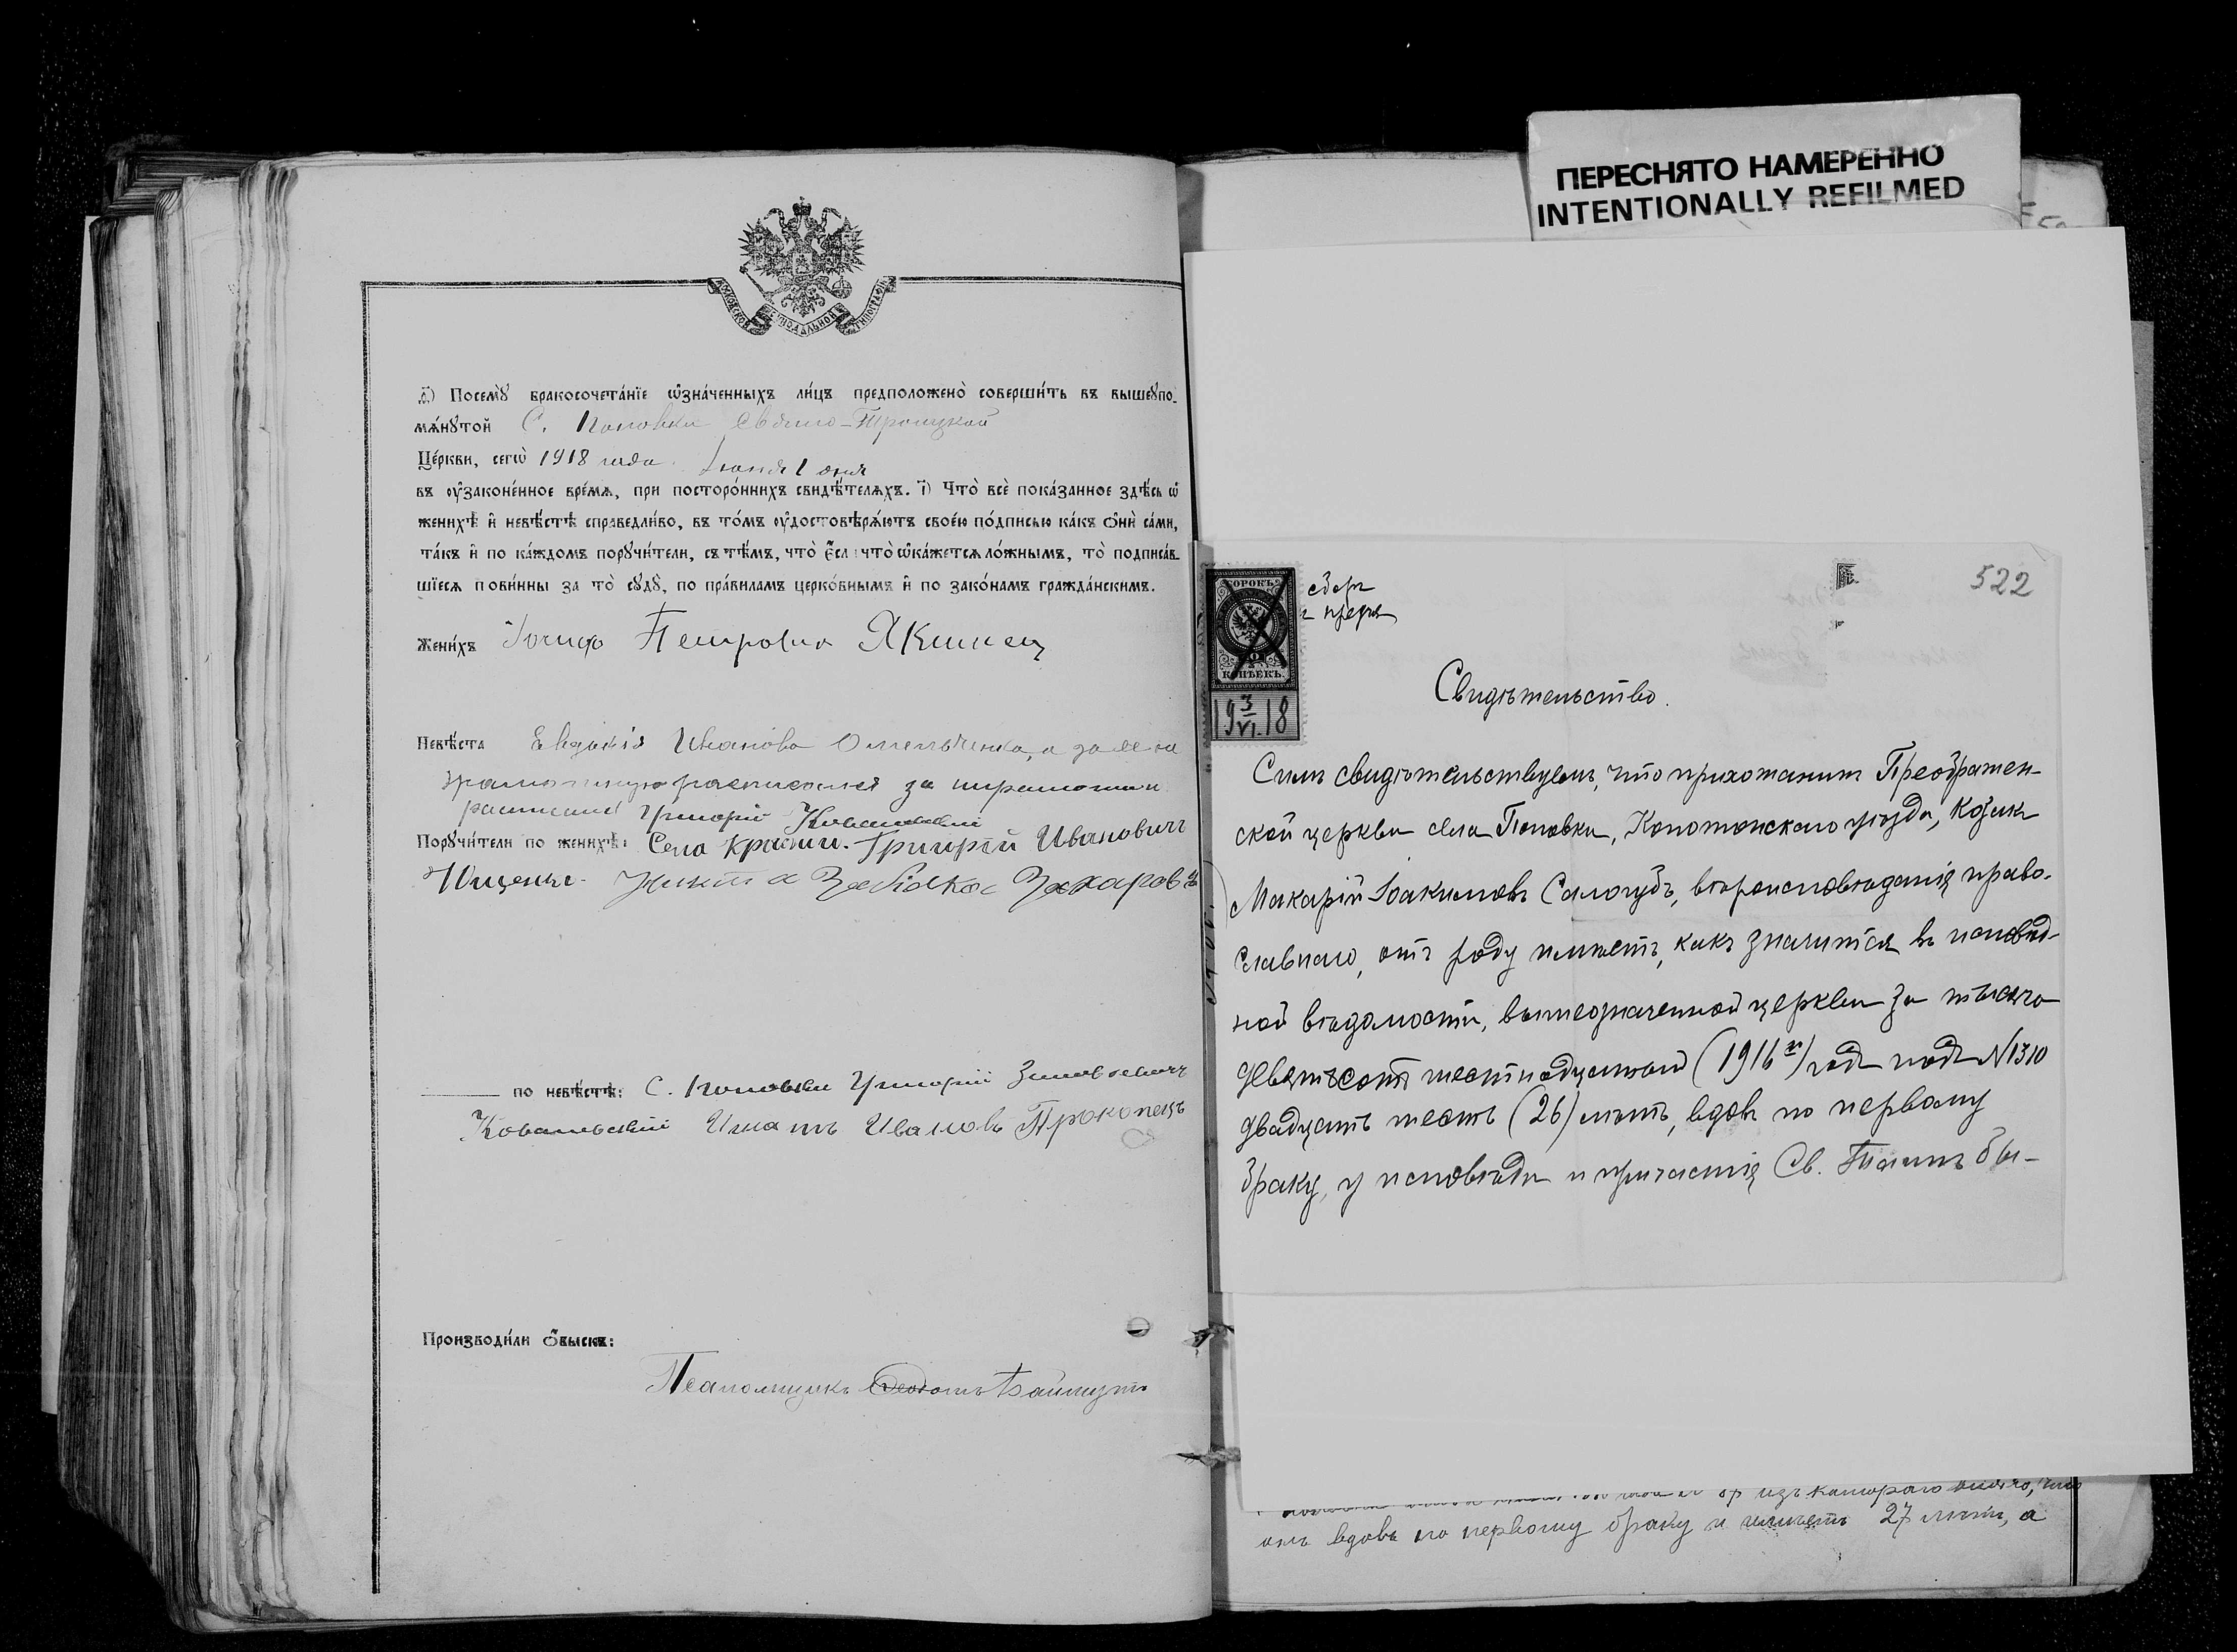 МОСКОВСКОЙ СѴНОДАЛЬНОЙ ТИПОГРАФІИ
д҃) Посемꙋ̀ бракосочета́нїе ѡ҆зна́ченныхъ ли́цъ предположено̀ соверши́ть въ вышеꙋпо-
мѧ́нꙋтой С. Поповки Свято-Троицкой
Це́ркви, сегѡ̀ 1918 года Іюня 1 дня
въ ᲂу҆законе́нное вре́мѧ, при посторо́ннихъ свидѣ́телѧхъ. і҃) Что̀ всѐ пока́занное здѣ́сь ѡ҆
женихѣ̀ и҆ невѣ́стѣ справедли́во, въ то́мъ ᲂу҆достовѣрѧ́ютъ свое́ю по́дписью ка́къ ѻ҆нѝ са́ми,
та́къ и҆ по ка́ждомъ порꙋчи́тели, съ тѣ́мъ, что̀ є҆́сли что̀ ѡ҆ка́жетсѧ ло́жнымъ, то̀ подписа́в-
шїесѧ пови́нны за то̀ сꙋдꙋ̀, по пра́виламъ церко́внымъ и҆ по зако́намъ гражда́нскимъ.
Жени́хъ Петровъ Якимец
Невѣ́ста Евдокія Иванова Омельченко, а за нея
за
Григорій Ковальскій
Порꙋчи́тели по женихѣ̀: Села Григорій Ивановичъ
Ющенко Захаровъ
по невѣ́стѣ: С. Поповки Григорій Зиновьевичъ
Ковальскій Игнатъ Ивановъ Прокопецъ
Производи́ли ѻ҆́быскъ:
Псаломщикъ Феодотъ
ПЕРЕСНЯТО НАМЕРЕННО
INTENTIONALLY REFILMED
522
СОРОКЪ
40
КОПѢЕКЪ.
19 3/VI 18
сборъ
Свидѣтельство.
Симъ свидѣтельствуемъ, что прихожанинъ Преображен-
ской церкви села Поповки, Конотопскаго уѣзда, козакъ
Макарій Іоакимовъ Салогубъ, вѣроисповѣданія право-
славнаго, отъ роду имѣетъ, какъ значится въ исповѣд-
ной вѣдомости, вышеозначенной церкви за тысяча
девятьсотъ шестнадцатый (1916й) годъ подъ №1310
двадцать шесть (26) лѣтъ, вдовъ по первому
браку, у исповѣди и причастія Св. Таинъ бы-
изъ котораго видно, что
онъ вдовъ по первому браку и имѣетъ 27 лѣтъ, а